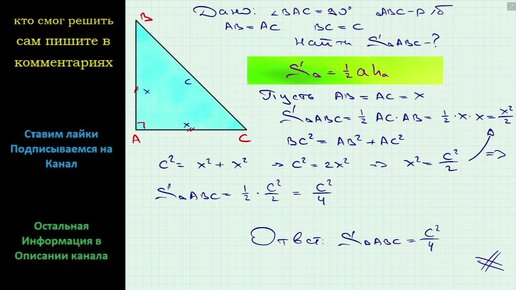 кто смог решить
сам пишите в
комментариях
Ставим лайки
Подписываемся на
Канал
Остальная
Информация в
Описании канала
B
c
x
x
A
C
Дано: ∠BAC = 90° ΔABC – р/б
AB = AC BC = c
Найти S ΔABC – ?
S Δ = 1/2 a hₐ
Пусть AB = AC = x
S ΔABC = 1/2 AC · AB = 1/2 · x · x = x²/2
BC² = AB² + AC²
c² = x² + x² ⇒ c² = 2x² ⇒ x² = c²/2 ⇒
S ΔABC = 1/2 · c²/2 = c²/4
Ответ: S ΔABC = c²/4